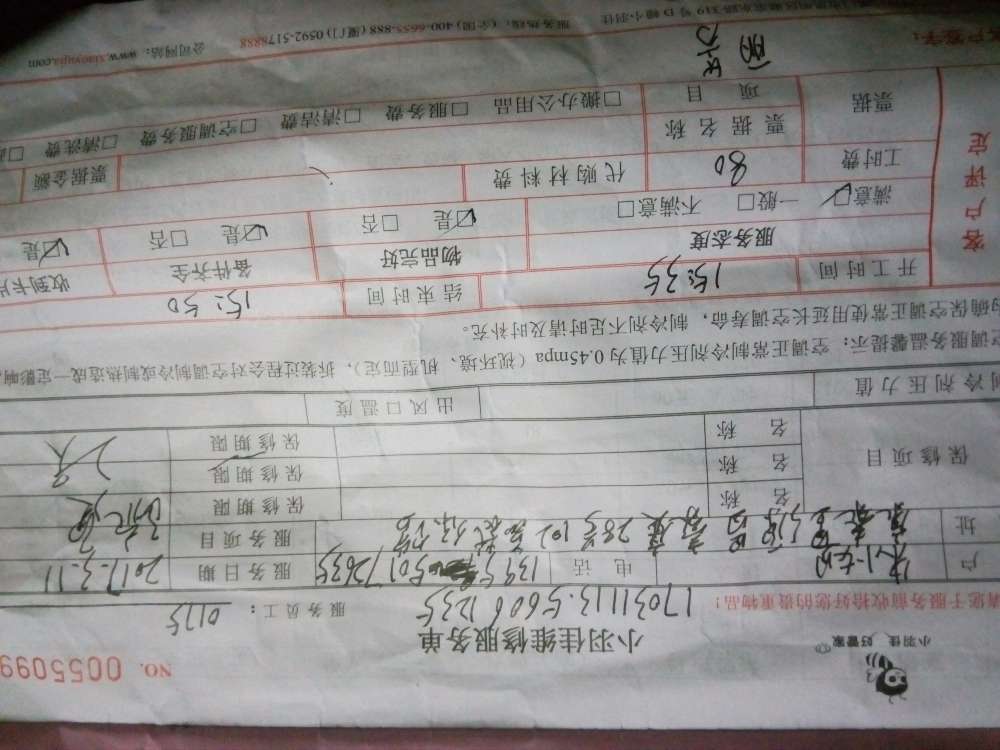 小羽佳 好管家
NO. 0055099
小羽佳维修服务单
17031113.56061235
服务员工: 0175
请您于服务前收拾好您的贵重物品!
户
电话 139 5017 2635
服务日期 2017.3.11
址
28号102
服务项目
保修项目
名称
保修期限
名称
保修期限
名称
保修期限
制冷剂压力值
出风口温度
空调服务温馨提示: 空调正常制冷剂压力值为0.45mpa (视环境、机型而定), 拆装过程会对空调制冷或制热造成一定影响,
为确保空调正常使用延长空调寿命, 制冷剂不足时请及时补充。
客户评定
开工时间 15:35
结束时间 15:50
收到卡片
服务态度
物品完好
备件齐全
满意☑ 一般□ 不满意□
☑是 □否
☑是 □否
☑是
工时费 80
代购材料费
票据金额
票据
票据名称
项目
□搬办公用品 □服务费 □清洁费 □空调服务费 □清洗费
客户签字:
319号D幢小羽佳
服务热线: (全国) 400-6655-888 (厦门) 0592-5178888
公司网站: www.xiaoyujia.com